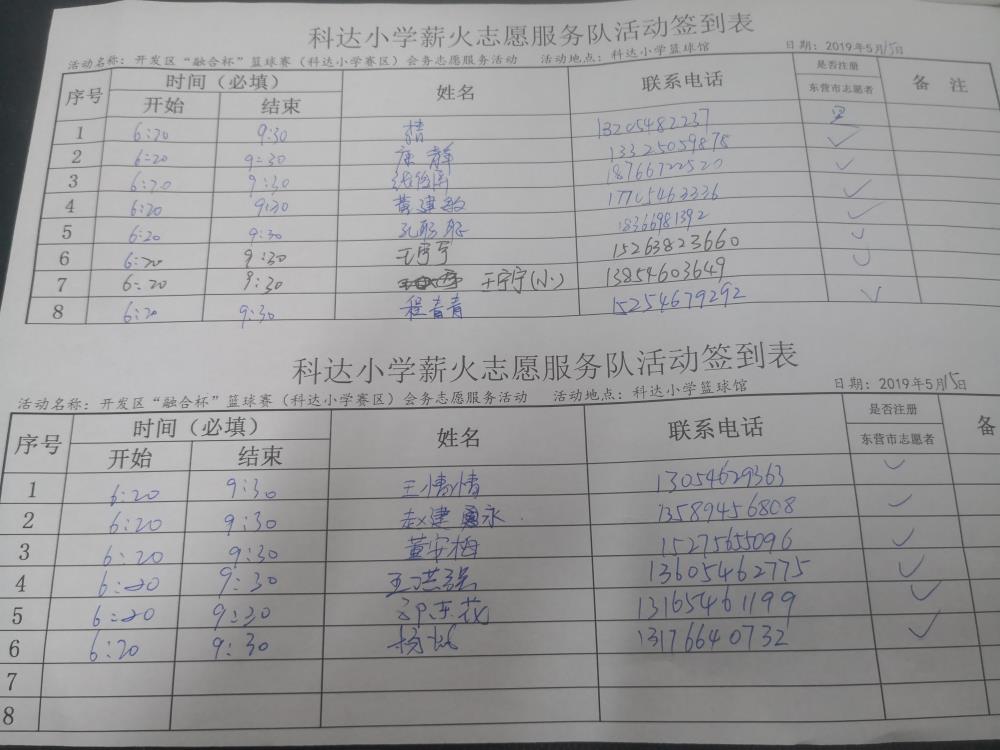 科达小学薪火志愿服务队活动签到表
活动名称：开发区“融合杯”篮球赛（科达小学赛区）会务志愿服务活动 活动地点：科达小学篮球馆 日期：2019年5月15日
序号 时间（必填） 姓名 联系电话 是否注册 备 注
开始 结束 东营市志愿者
1 6:20 9:30 13205482237
2 6:20 9:30 康静 13325059875
3 6:20 9:30 18766722520
4 6:20 9:30 黄建敏 17705463336
5 6:20 9:30 18366981392
6 6:20 9:30 王宁宁 15263823660
7 6:20 9:30 王宁宁(小) 13854603649
8 6:20 9:30 程青青 15254679292
科达小学薪火志愿服务队活动签到表
活动名称：开发区“融合杯”篮球赛（科达小学赛区）会务志愿服务活动 活动地点：科达小学篮球馆 日期：2019年5月15日
序号 时间（必填） 姓名 联系电话 是否注册 备
开始 结束 东营市志愿者
1 6:20 9:30 王情情 13054629363
2 6:20 9:30 赵建永 13589456808
3 6:20 9:30 董安梅 15275655096
4 6:20 9:30 王洪强 13605462775
5 6:20 9:30 邵东花 13165461199
6 6:20 9:30 13176640732
7
8